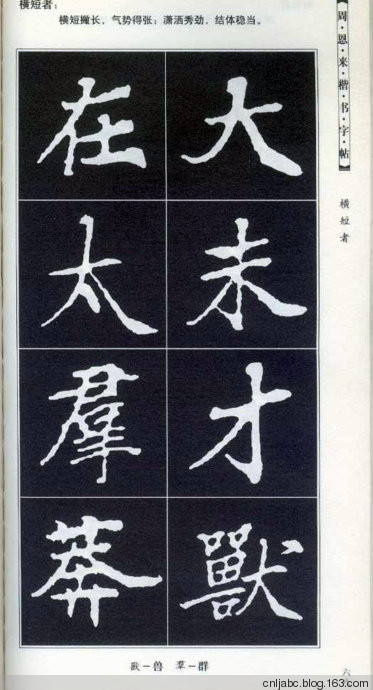 横短者：
横短撇长，气势得张；潇洒秀劲，结体稳当。
【周·恩·来·楷·书·字·帖】
横短者
大未才獸
在太羣莽
獸－兽 羣－群
六
cnljabc.blog.163.com